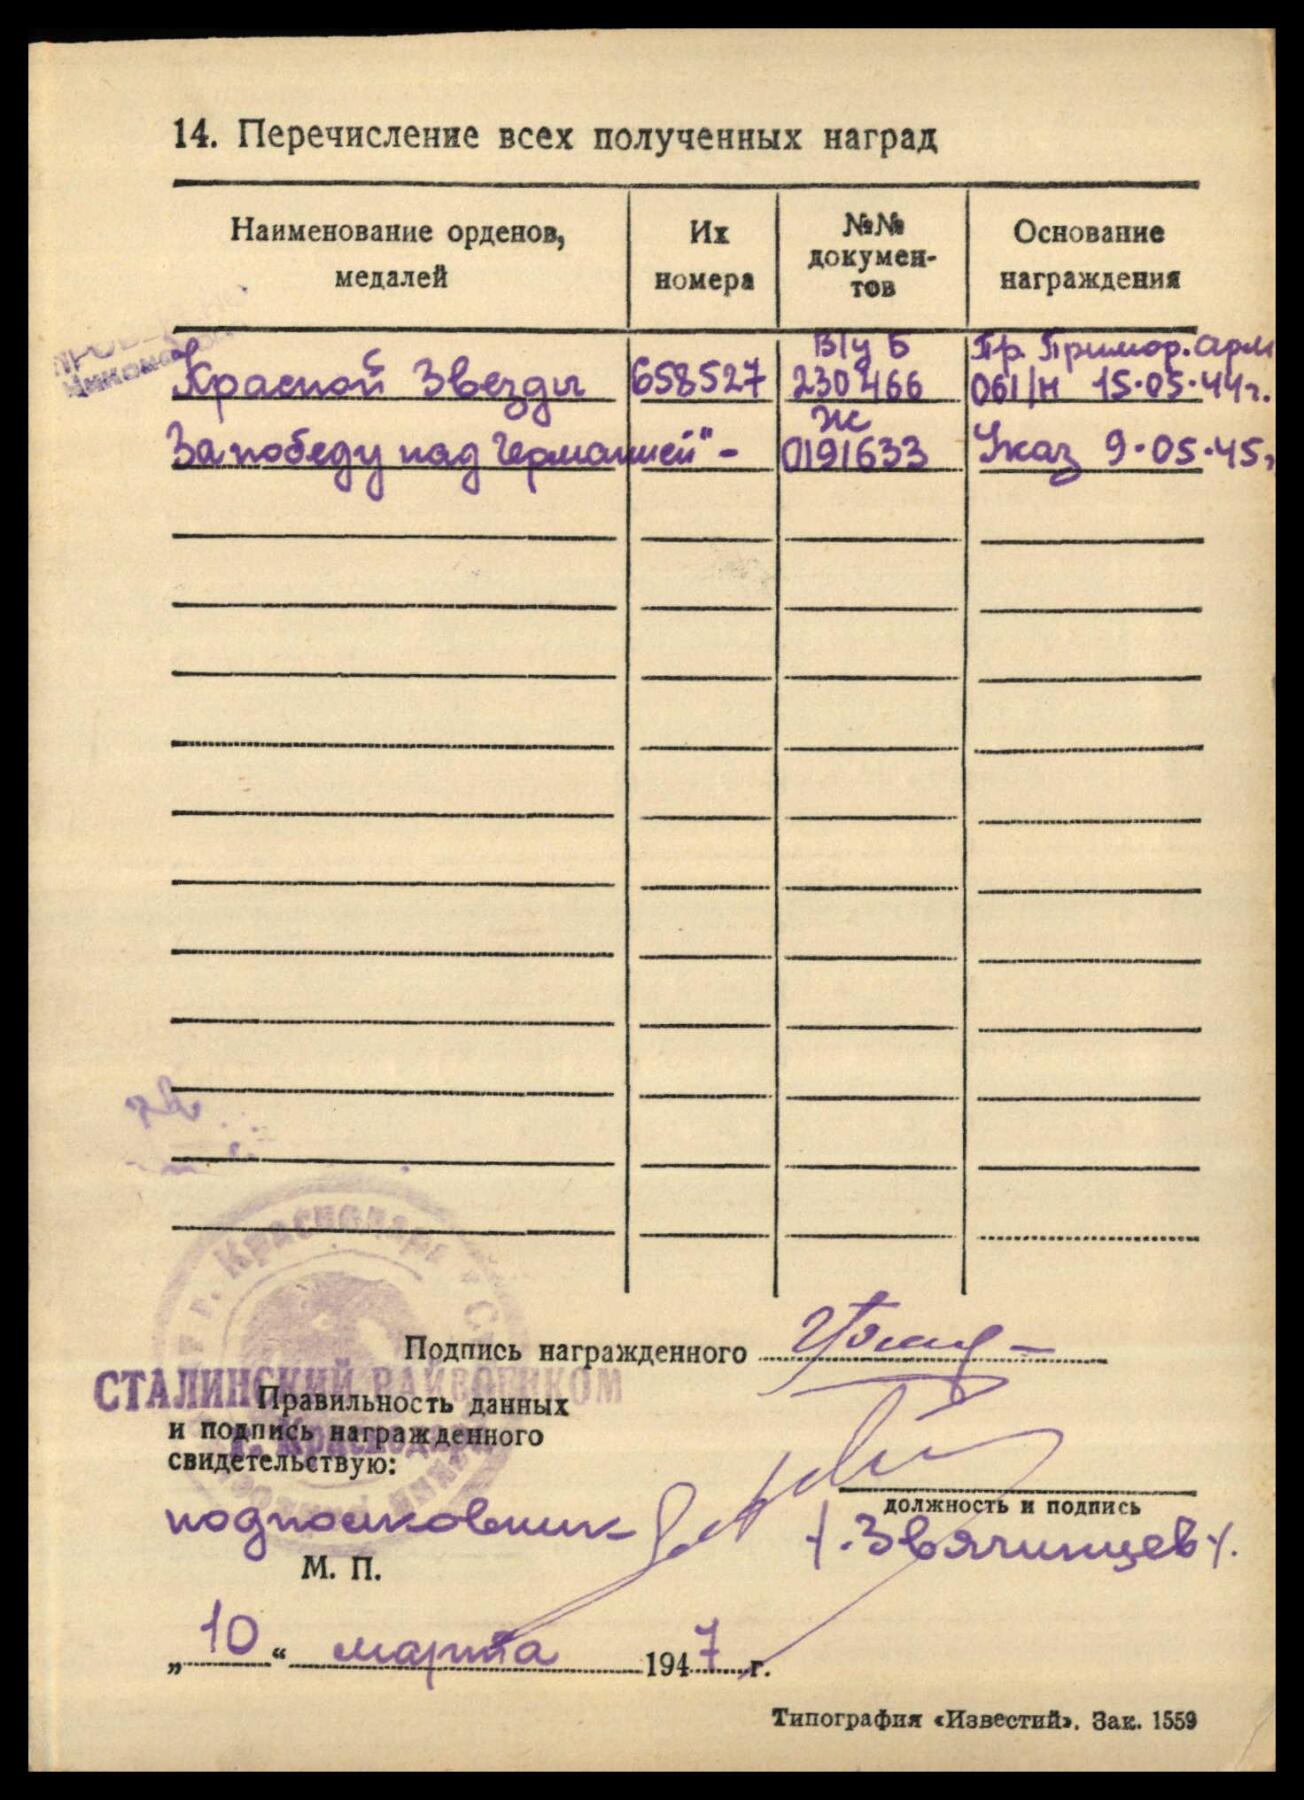 14. Перечисление всех полученных наград
Наименование орденов, медалей
Их номера
№№ докумен-тов
Основание награждения
В/у Б Пр. Примор. арм
Красной Звезды 658527 230466 061/н 15.05.44г.
Ж
За победу над Германией" - 0191633 Указ 9.05.45г
Подпись награжденного
СТАЛИНСКИЙ РАЙВОЕНКОМ
г. Краснодара
Правильность данных
и подпись награжденного
свидетельствую:
должность и подпись
подполковник /.Звягинцев/.
М. П.
„10“ марта 1947 г.
Типография «Известий». Зак. 1559